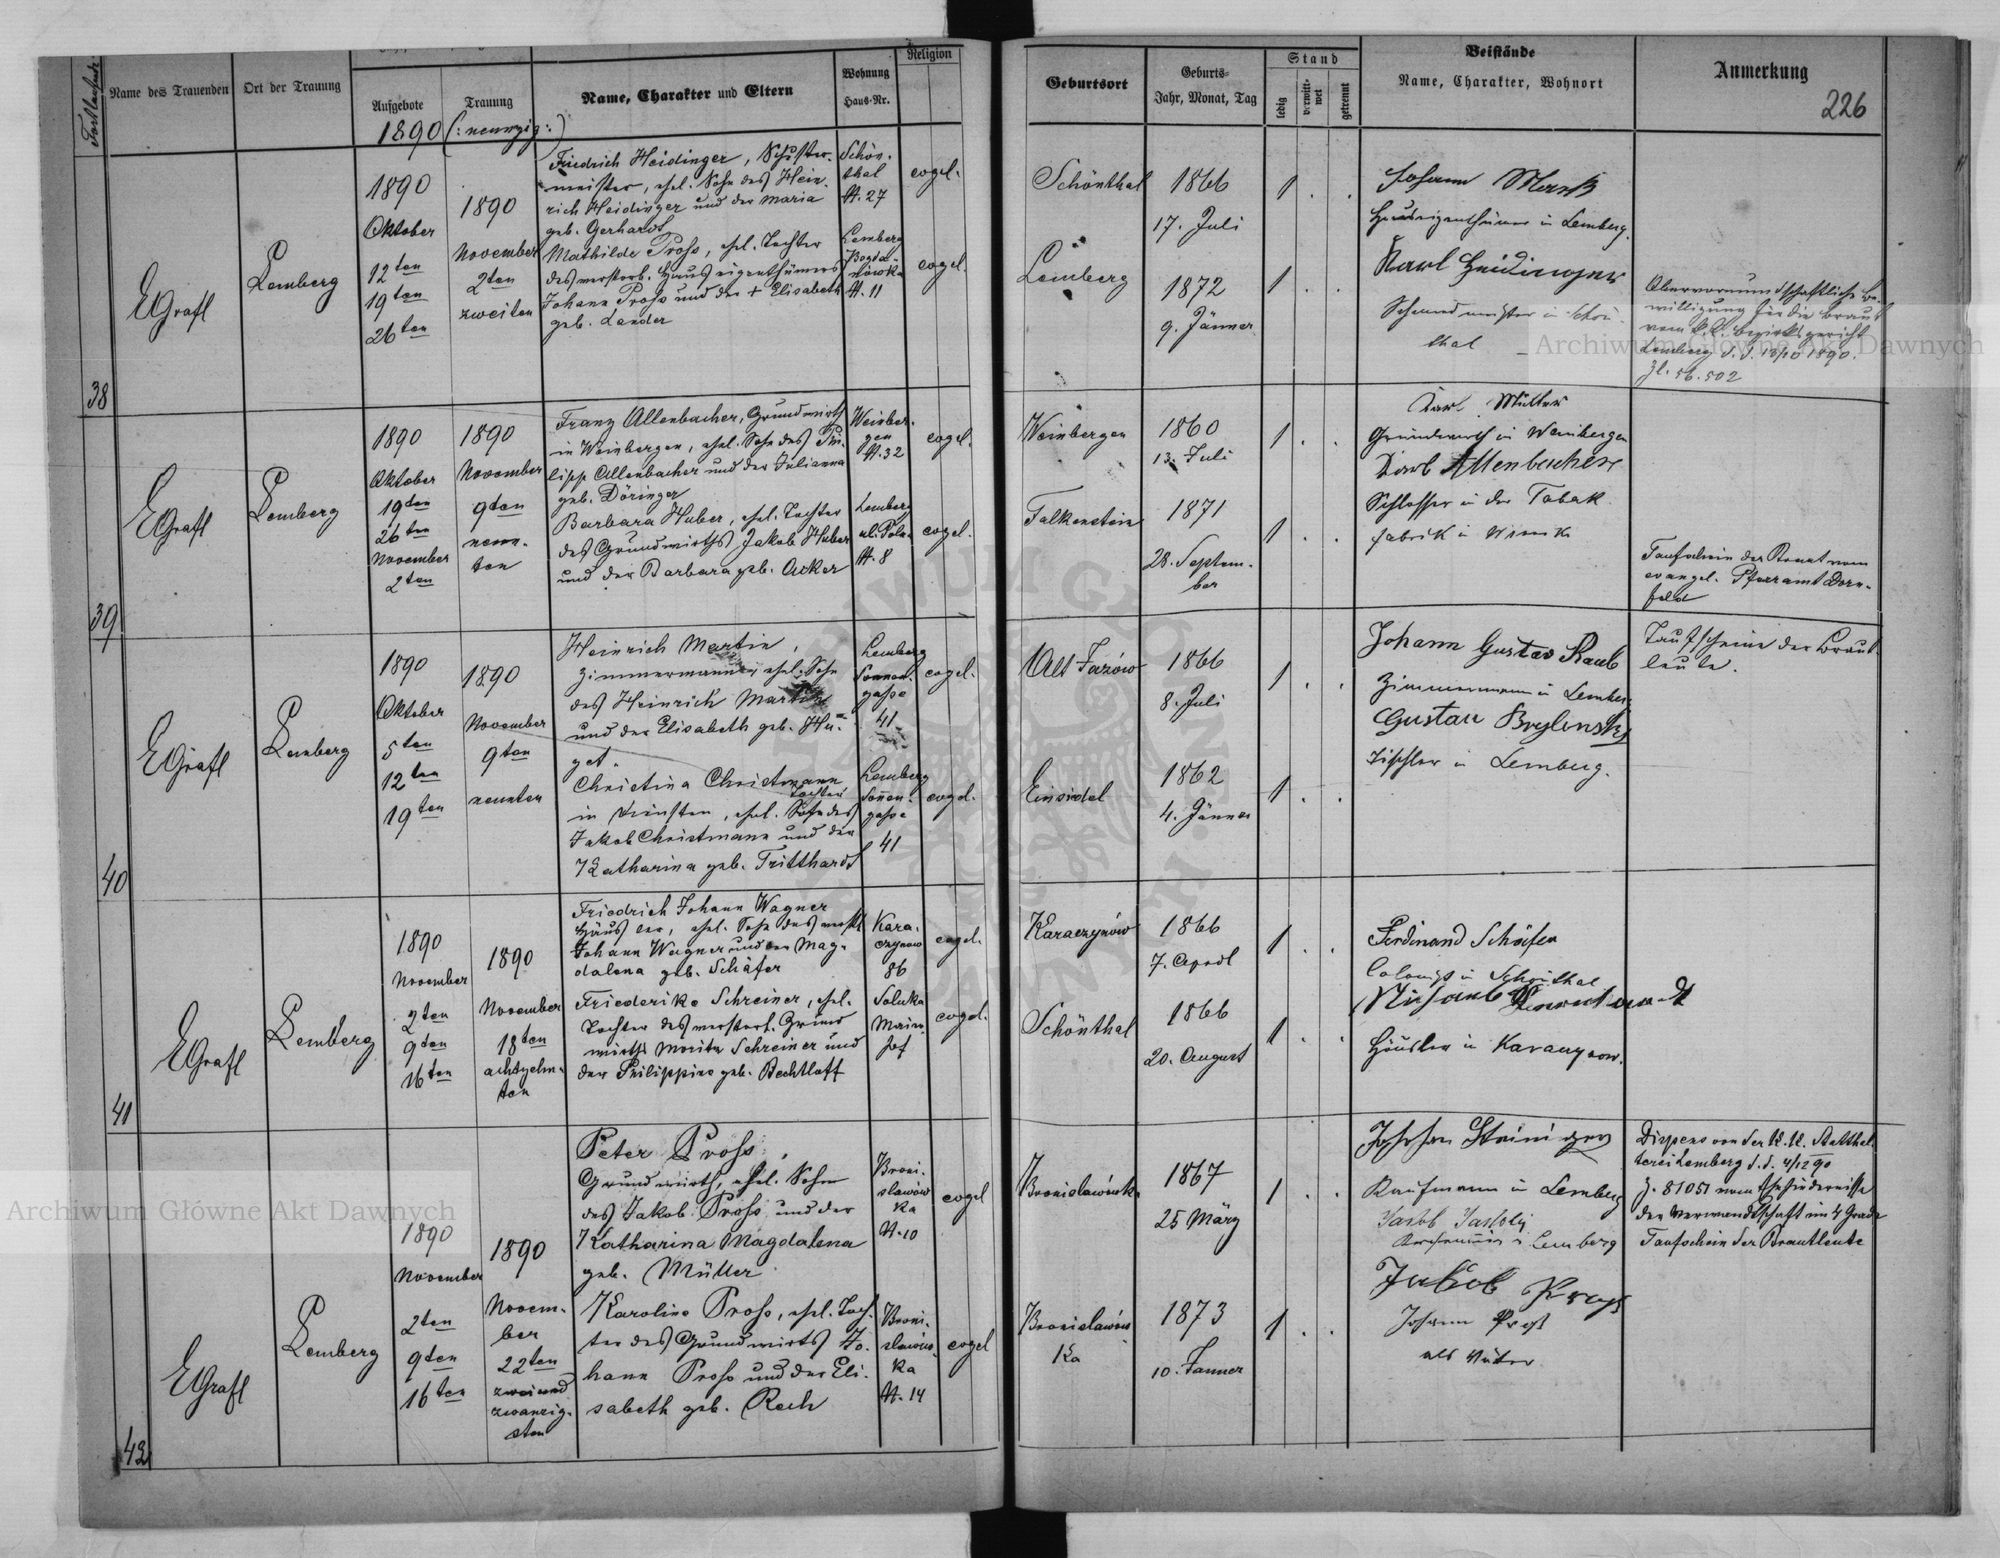 Fortlaufende
Name des Trauenden
Ort der Trauung
Aufgebote
Trauung
Name, Charakter und Eltern
Wohnung
Haus-Nr.
Religion
Geburtsort
Geburts-
Jahr, Monat, Tag
Stand
ledig
verwitt-
wet
getrennt
Beistände
Name, Charakter, Wohnort
Anmerkung
226
1890 (: neunzig :)
38
EGrafl
Lemberg
1890
Oktober
12ten
19ten
26ten
1890
November
2ten
zweiten
Friedrich Heidinger, Schuster-
meister, ehel. Sohn des Hein-
rich Heidinger und der Maria
geb. Gerhardt
Mathilde Pross, ehel. Tochter
des verstorb. Hauseigenthümers
Johann Pross und der + Elisabeth
geb. Lander
Schön-
thal
N. 27
Lemberg
Bogda-
nówka
N. 11
evgel.
evgel.
Schönthal
Lemberg
1866
17. Juli
1872
9. Jänner
1 . .
1 . .
Johann
Hauseigenthümer in Lemberg.
Karl Heidinger
Schmiedmeister in Schön-
thal
Obervormundschaftliche Be-
willigung für die Braut
vom k.k. Bezirksgericht
Lemberg d. d. 13/10 1890.
Zl. 56.502
39
EGrafl
Lemberg
1890
Oktober
19ten
26ten
November
2ten
1890
November
9ten
neun-
ten
Franz Allenbacher, Grundwirth
in Weinbergen, ehel. Sohn des Phi-
lipp Allenbacher und der Julianna
geb. Döringer
Barbara Huber, ehel. Tochter
des Grundwirths Jakob Huber
und der Barbara geb. Acker
Weinber-
gen
N. 32
Lemberg
ul. Polna
N. 8
evgel.
evgel.
Weinbergen
Falkenstein
1860
13. Juli
1871
28. Septem-
ber
1 . .
1 . .
Karl Müller
Grundwirth in Weinbergen
Karl Allenbacher
Schlosser in der Tabak
fabrik in Winnik
Taufschein der Braut vom
evangel. Pfarramt Dorn-
feld
40
EGrafl
Lemberg
1890
Oktober
5ten
12ten
19ten
1890
November
9ten
neunten
Heinrich Martin,
Zimmermann, ehel. Sohn
des Heinrich Martin
und der Elisabeth geb. Hu-
get.
Christina Christmann
Tochter
in Diensten, ehel. Sohn des
Jakob Christmann und der
Katharina geb. Tritthardt
Lemberg
Sonnen-
gasse
41
Lemberg
Sonnen-
gasse
41
evgel.
evgel.
Alt Jazów
Einsidel
1866
8. Juli
1862
4. Jänner
1 . .
1 . .
Johann Gustav Raub
Zimmermann in Lemberg
Gustav
Tischler in Lemberg.
Taufscheine der Braut-
leute.
41
EGrafl
Lemberg
1890
November
2ten
9ten
16ten
1890
November
18ten
achtzehn-
ten
Friedrich Johann Wagner
Häusler, ehel. Sohn des verst.
Johann Wagner und der Mag-
dalena geb. Schäfer
Friederike Schreiner, ehel.
Tochter des verstorb. Grund
wirths Moritz Schreiner und
der Philippine geb. Bechtloff
Kara-
czynow
86
Soluka
Maier-
hof
evgel.
evgel.
Karaczynów
Schönthal
1866
7. April
1866
20. August
1 . .
1 . .
Ferdinand Schäfer
Colonist in Schönthal
Häusler in Karaczynow.
42
EGrafl
Lemberg
1890
November
2ten
9ten
16ten
1890
Novem-
ber
22ten
zweiund
zwanzig-
sten
Peter Pross,
Grundwirth, ehel. Sohn
des Jakob Pross und der
Katharina Magdalena
geb. Müller
Karoline Pross, ehel. Toch-
ter des Grundwirts Jo-
hann Pross und der Eli-
sabeth geb. Rech
Broni-
slawów
ka
N. 10
Broni-
slawów-
ka
N. 14
evgel
evgel
Bronislawówka
Bronislawów
ka
1867
25 März
1873
10. Janner
1 . .
1 . .
Kaufmann in Lemberg
Jakob
in Lemberg
Jakob Pross
Johann Pross
als Väter
Dispens von der k.k. Statthal-
terei Lemberg d. d. 4/12 90
Z. 81051 vom Ehehindernisse
der Verwandtschaft im 4 Grade
Taufschein der Brautleute
Archiwum Główne Akt Dawnych
Archiwum Główne Akt Dawnych